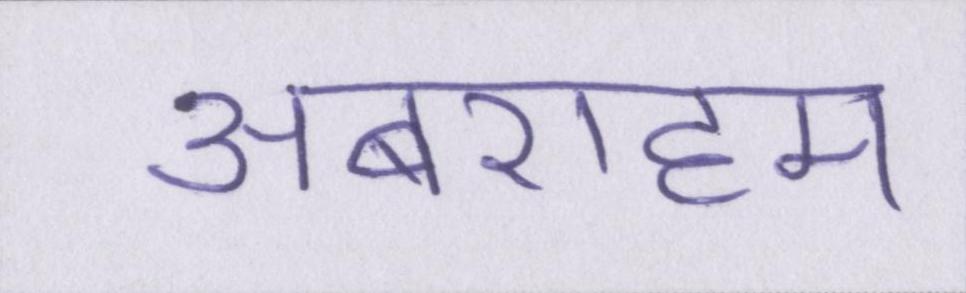 अबराहम